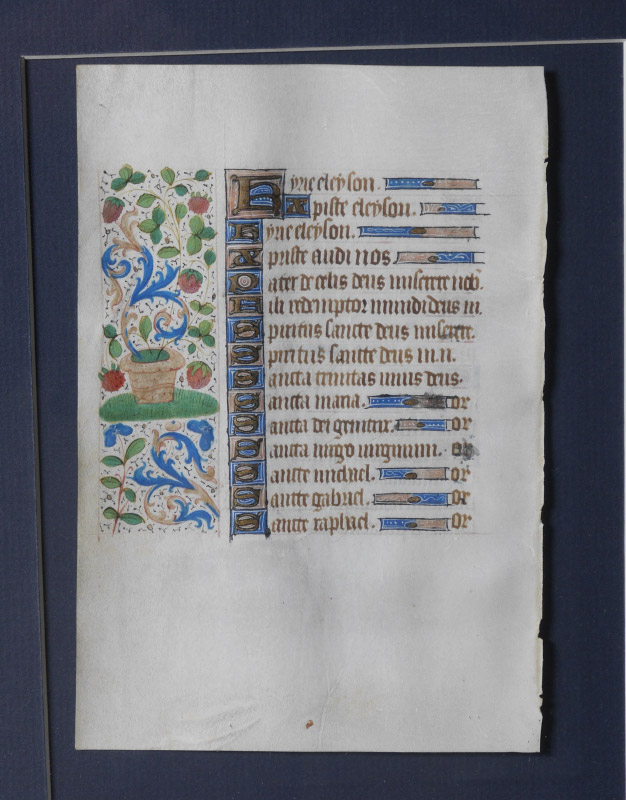 Kyrie eleyson.
Xpiste eleyson.
Kyrie eleyson.
Xpiste audi nos
Pater de celis deus miserere nob
Fili redemptor mundi deus m.
Spiritus sancte deus miserere.
Spiritus sancte deus m.n.
Sancta trinitas unus deus.
Sancta maria. or
Sancta dei genitrix. or
Sancta virgo virginum. or
Sancte michael. or
Sancte gabriel. or
Sancte raphael. or